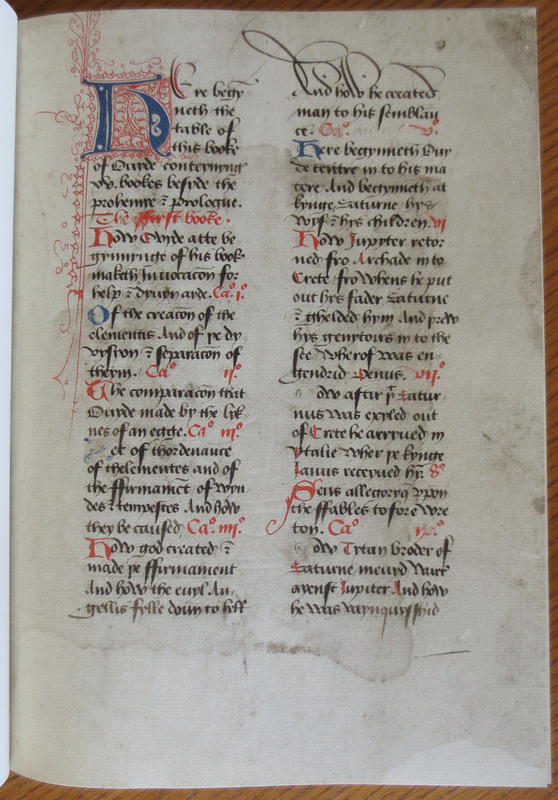 Here begyn
neth the
table of
this booke
of Ouyde conteynyng
xv. bookes besyde the
prohemye & prologue.
The ffirst booke.
How Ouyde atte be
gynnynge of his book
maketh Inuocacion for
help & dyuyn ayde. Cao. io.
Of the creacon of the
elementis And of þe dy
uysyon & separacon of
theym. Cao iio.
The comparacon that
Ouyde made by the lyk
nes of an egge. Cao iiio.
et of thordenaunce
of thelementes and of
the ffirmament, of wyn
des & tempestes And how
they be caused, Cao. iiiio.
How god created &
made þe ffirmament
And how the euyl An
gellis fylle doun to hell
And how he created
man to his semblau
ce. Cao. vo.
Here begynneth Ouy
de tentre in to his ma
tere. And begynneth at
kynge Saturne hys
wyf & hys children. vi
How Jupyter retor
ned fro Archade in to
Crete, fro whens he put
out hys fader Saturne
& ghelded hym And þrew
hys genytoirs in to the
see Wherof was en
gendrid Venus. viio.
ow aftir þt Satur
nus was exyled out
of Crete he arryued in
ytalie wher þe kynge
Janus receyued hym. 8o
Sens allegoryq vpon
the ffables to fore wre
ton. Cao ixo.
ow Tytan broder of
Saturne meuyd warr
ayenst Jupiter And how
he was vaynquysshid